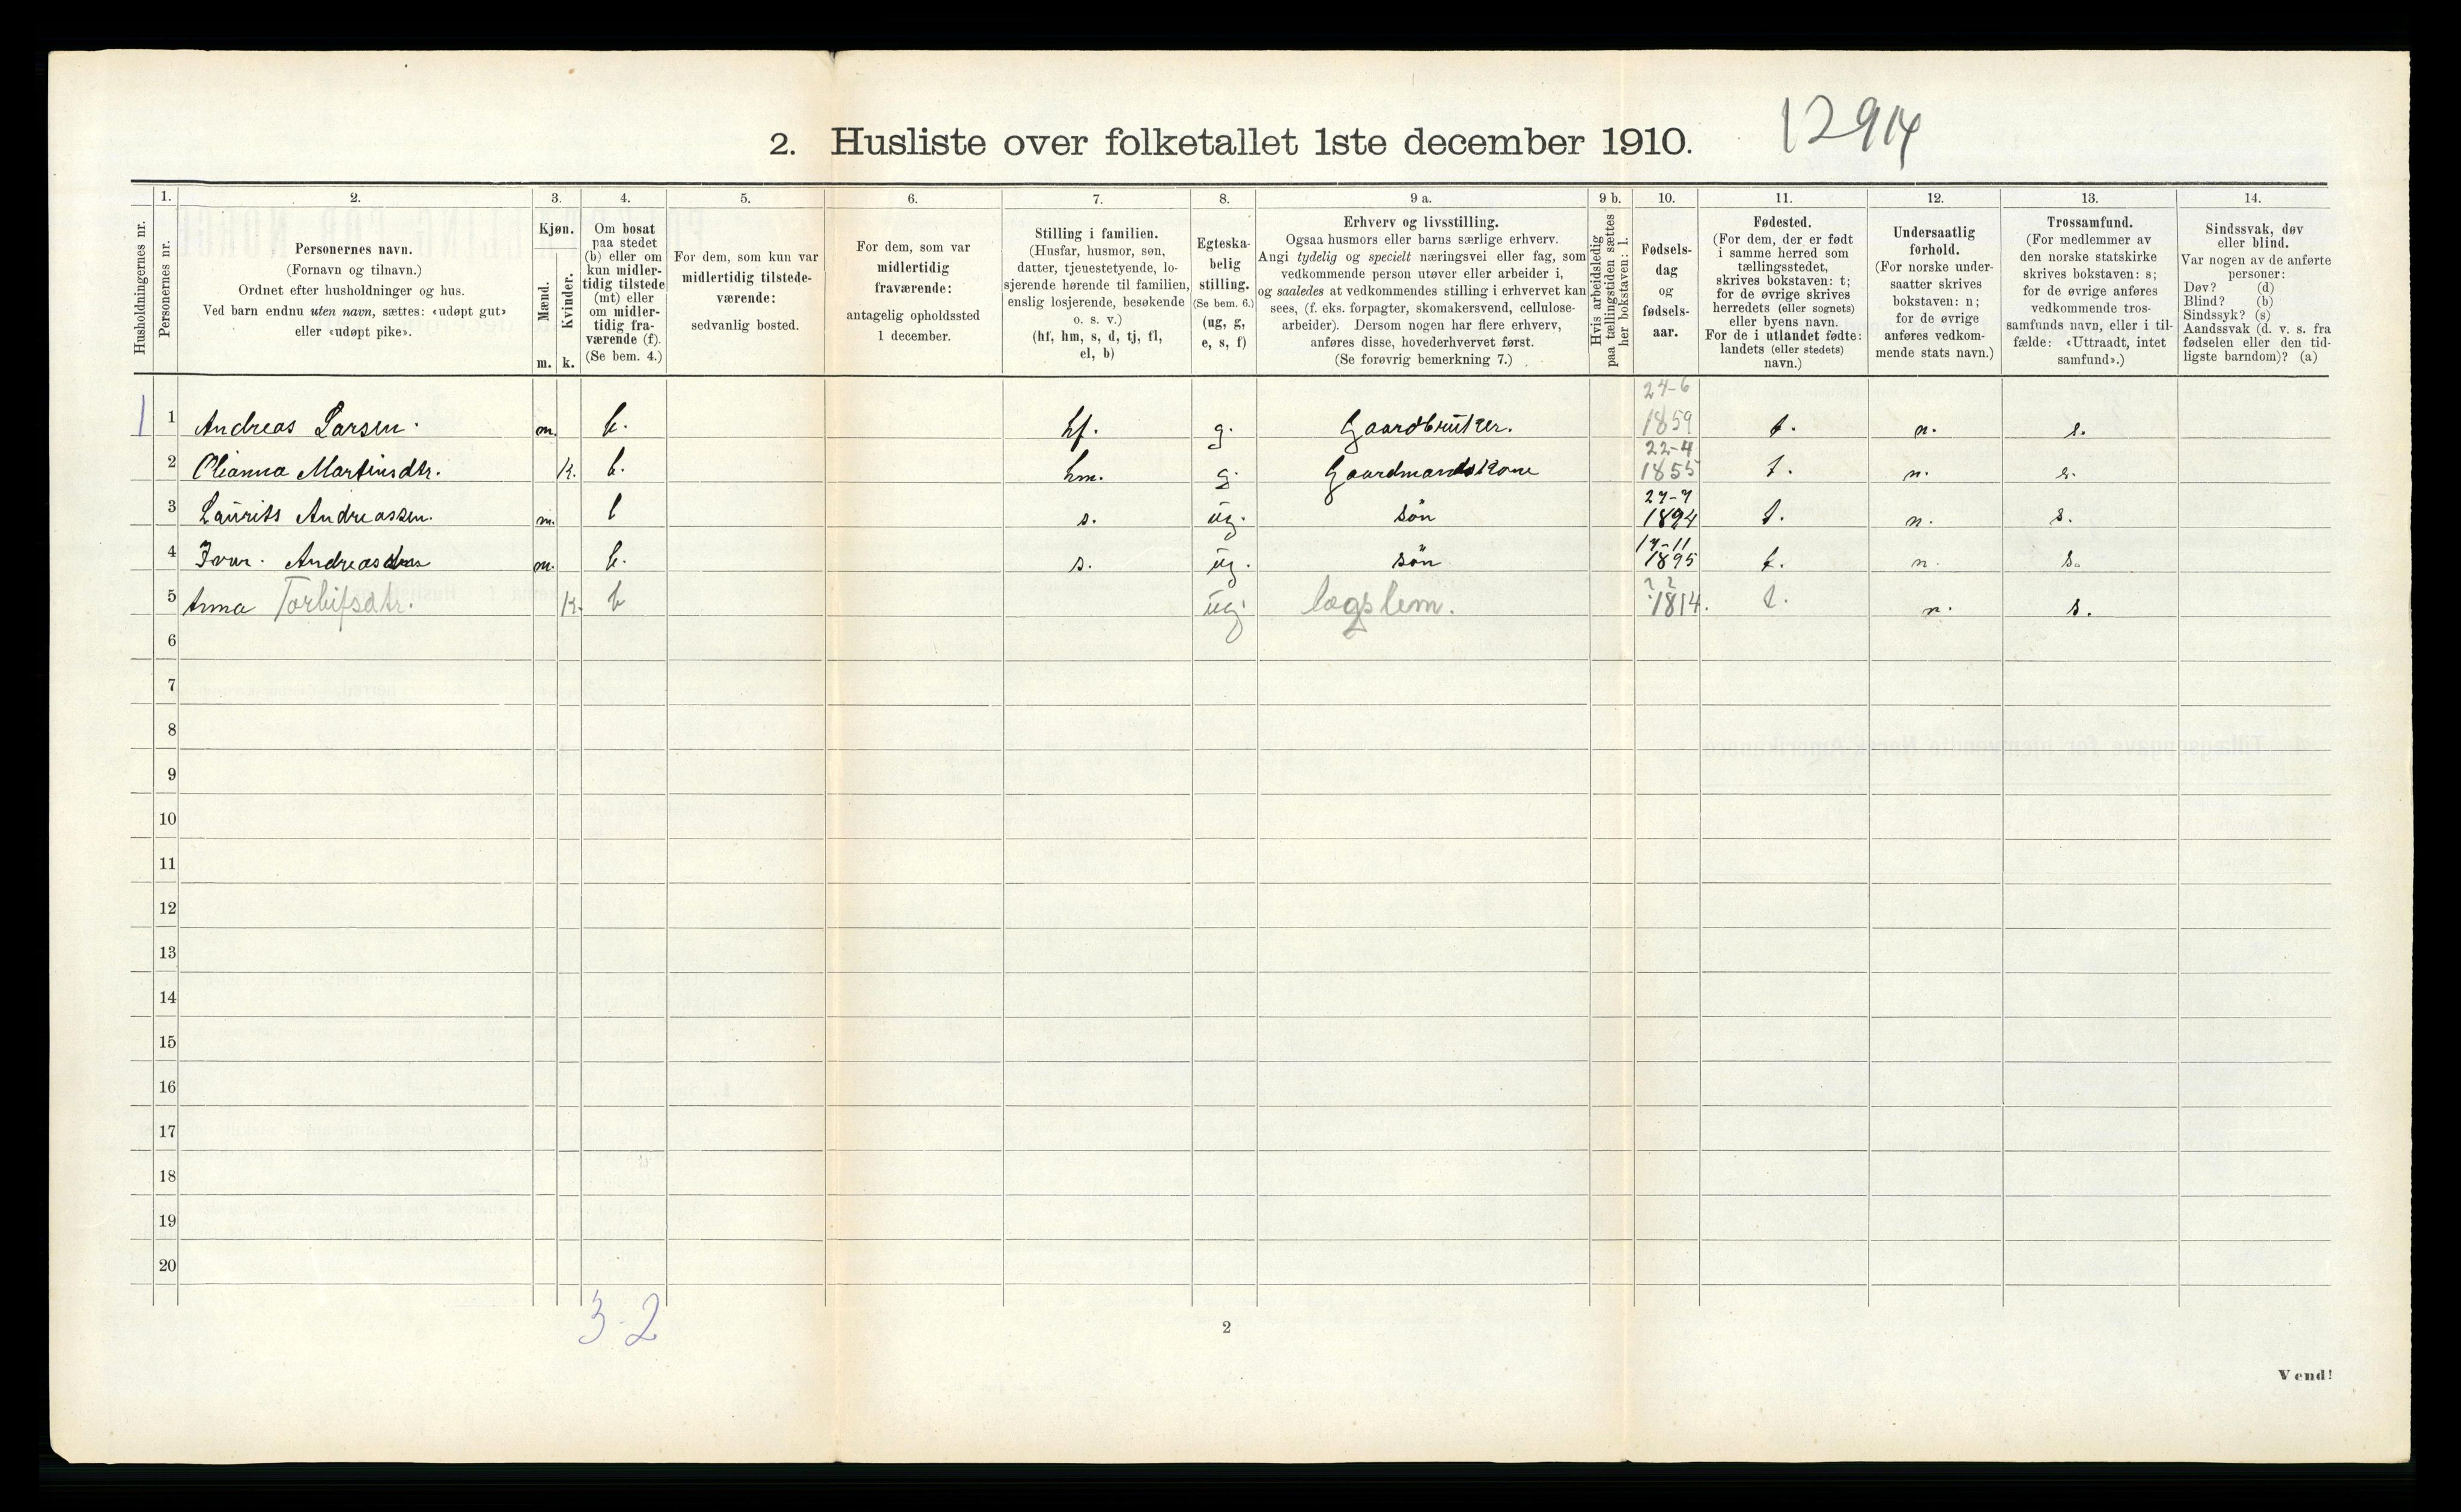 2. Husliste over folketallet 1ste december 1910.
12914
1. 2. 3. 4. 5. 6. 7. 8. 9 a. 9 b. 10. 11. 12. 13. 14.
Husholdningernes nr.
Personernes nr.
Personernes navn.
(Fornavn og tilnavn.)
Ordnet efter husholdninger og hus.
Ved barn endnu uten navn, sættes: «udøpt gut»
eller «udøpt pike».
Kjøn.
Mænd.
Kvinder.
m. k.
Om bosat
paa stedet
(b) eller om
kun midler-
tidig tilstede
(mt) eller
om midler-
tidig fra-
værende (f).
(Se bem. 4.)
For dem, som kun var
midlertidig tilstede-
værende:
sedvanlig bosted.
For dem, som var
midlertidig
fraværende:
antagelig opholdssted
1 december.
Stilling i familien.
(Husfar, husmor, søn,
datter, tjenestetyende, lo-
sjerende hørende til familien,
enslig losjerende, besøkende
o. s. v.)
(hf, hm, s, d, tj, fl,
el, b)
Egteska-
belig
stilling.
(Se bem. 6.)
(ug, g,
e, s, f)
Erhverv og livsstilling.
Ogsaa husmors eller barns særlige erhverv.
Angi tydelig og specielt næringsvei eller fag, som
vedkommende person utøver eller arbeider i,
og saaledes at vedkommendes stilling i erhvervet kan
sees, (f. eks. forpagter, skomakersvend, cellulose-
arbeider). Dersom nogen har flere erhverv,
anføres disse, hovederhvervet først.
(Se forøvrig bemerkning 7.)
Hvis arbeidsledig
paa tællingstiden sættes
her bokstaven: l.
Fødsels-
dag
og
fødsels-
aar.
Fødested.
(For dem, der er født
i samme herred som
tællingsstedet,
skrives bokstaven: t;
for de øvrige skrives
herredets (eller sognets)
eller byens navn.
For de i utlandet fødte:
landets (eller stedets)
navn.)
Undersaatlig
forhold.
(For norske under-
saatter skrives
bokstaven: n;
for de øvrige
anføres vedkom-
mende stats navn.)
Trossamfund.
(For medlemmer av
den norske statskirke
skrives bokstaven: s;
for de øvrige anføres
vedkommende tros-
samfunds navn, eller i til-
fælde: «Uttraadt, intet
samfund».)
Sindssvak, døv
eller blind.
Var nogen av de anførte
personer:
Døv? (d)
Blind? (b)
Sindssyk? (s)
Aandssvak (d. v. s. fra
fødselen eller den tid-
ligste barndom)? (a)
1 1 Andreas Larsen. m. b. hf. g. Gaardbruker. 24-6 1859 t. n. s.
2 Olianna Martinsdtr. k. b. hm. g. Gaardmandskone 22-4 1855 t. n. s.
3 Laurits Andreassen. m. b s. ug. søn 27-7 1894 t. n. s.
4 Ivar. m. b. s. ug. søn 17-11 1895 t. n. s.
5 Anna k. b ug. lægslem. ? ? 1814. t. n. s.
6
7
8
9
10
11
12
13
14
15
16
17
18
19
20
3-2
2
Vend!